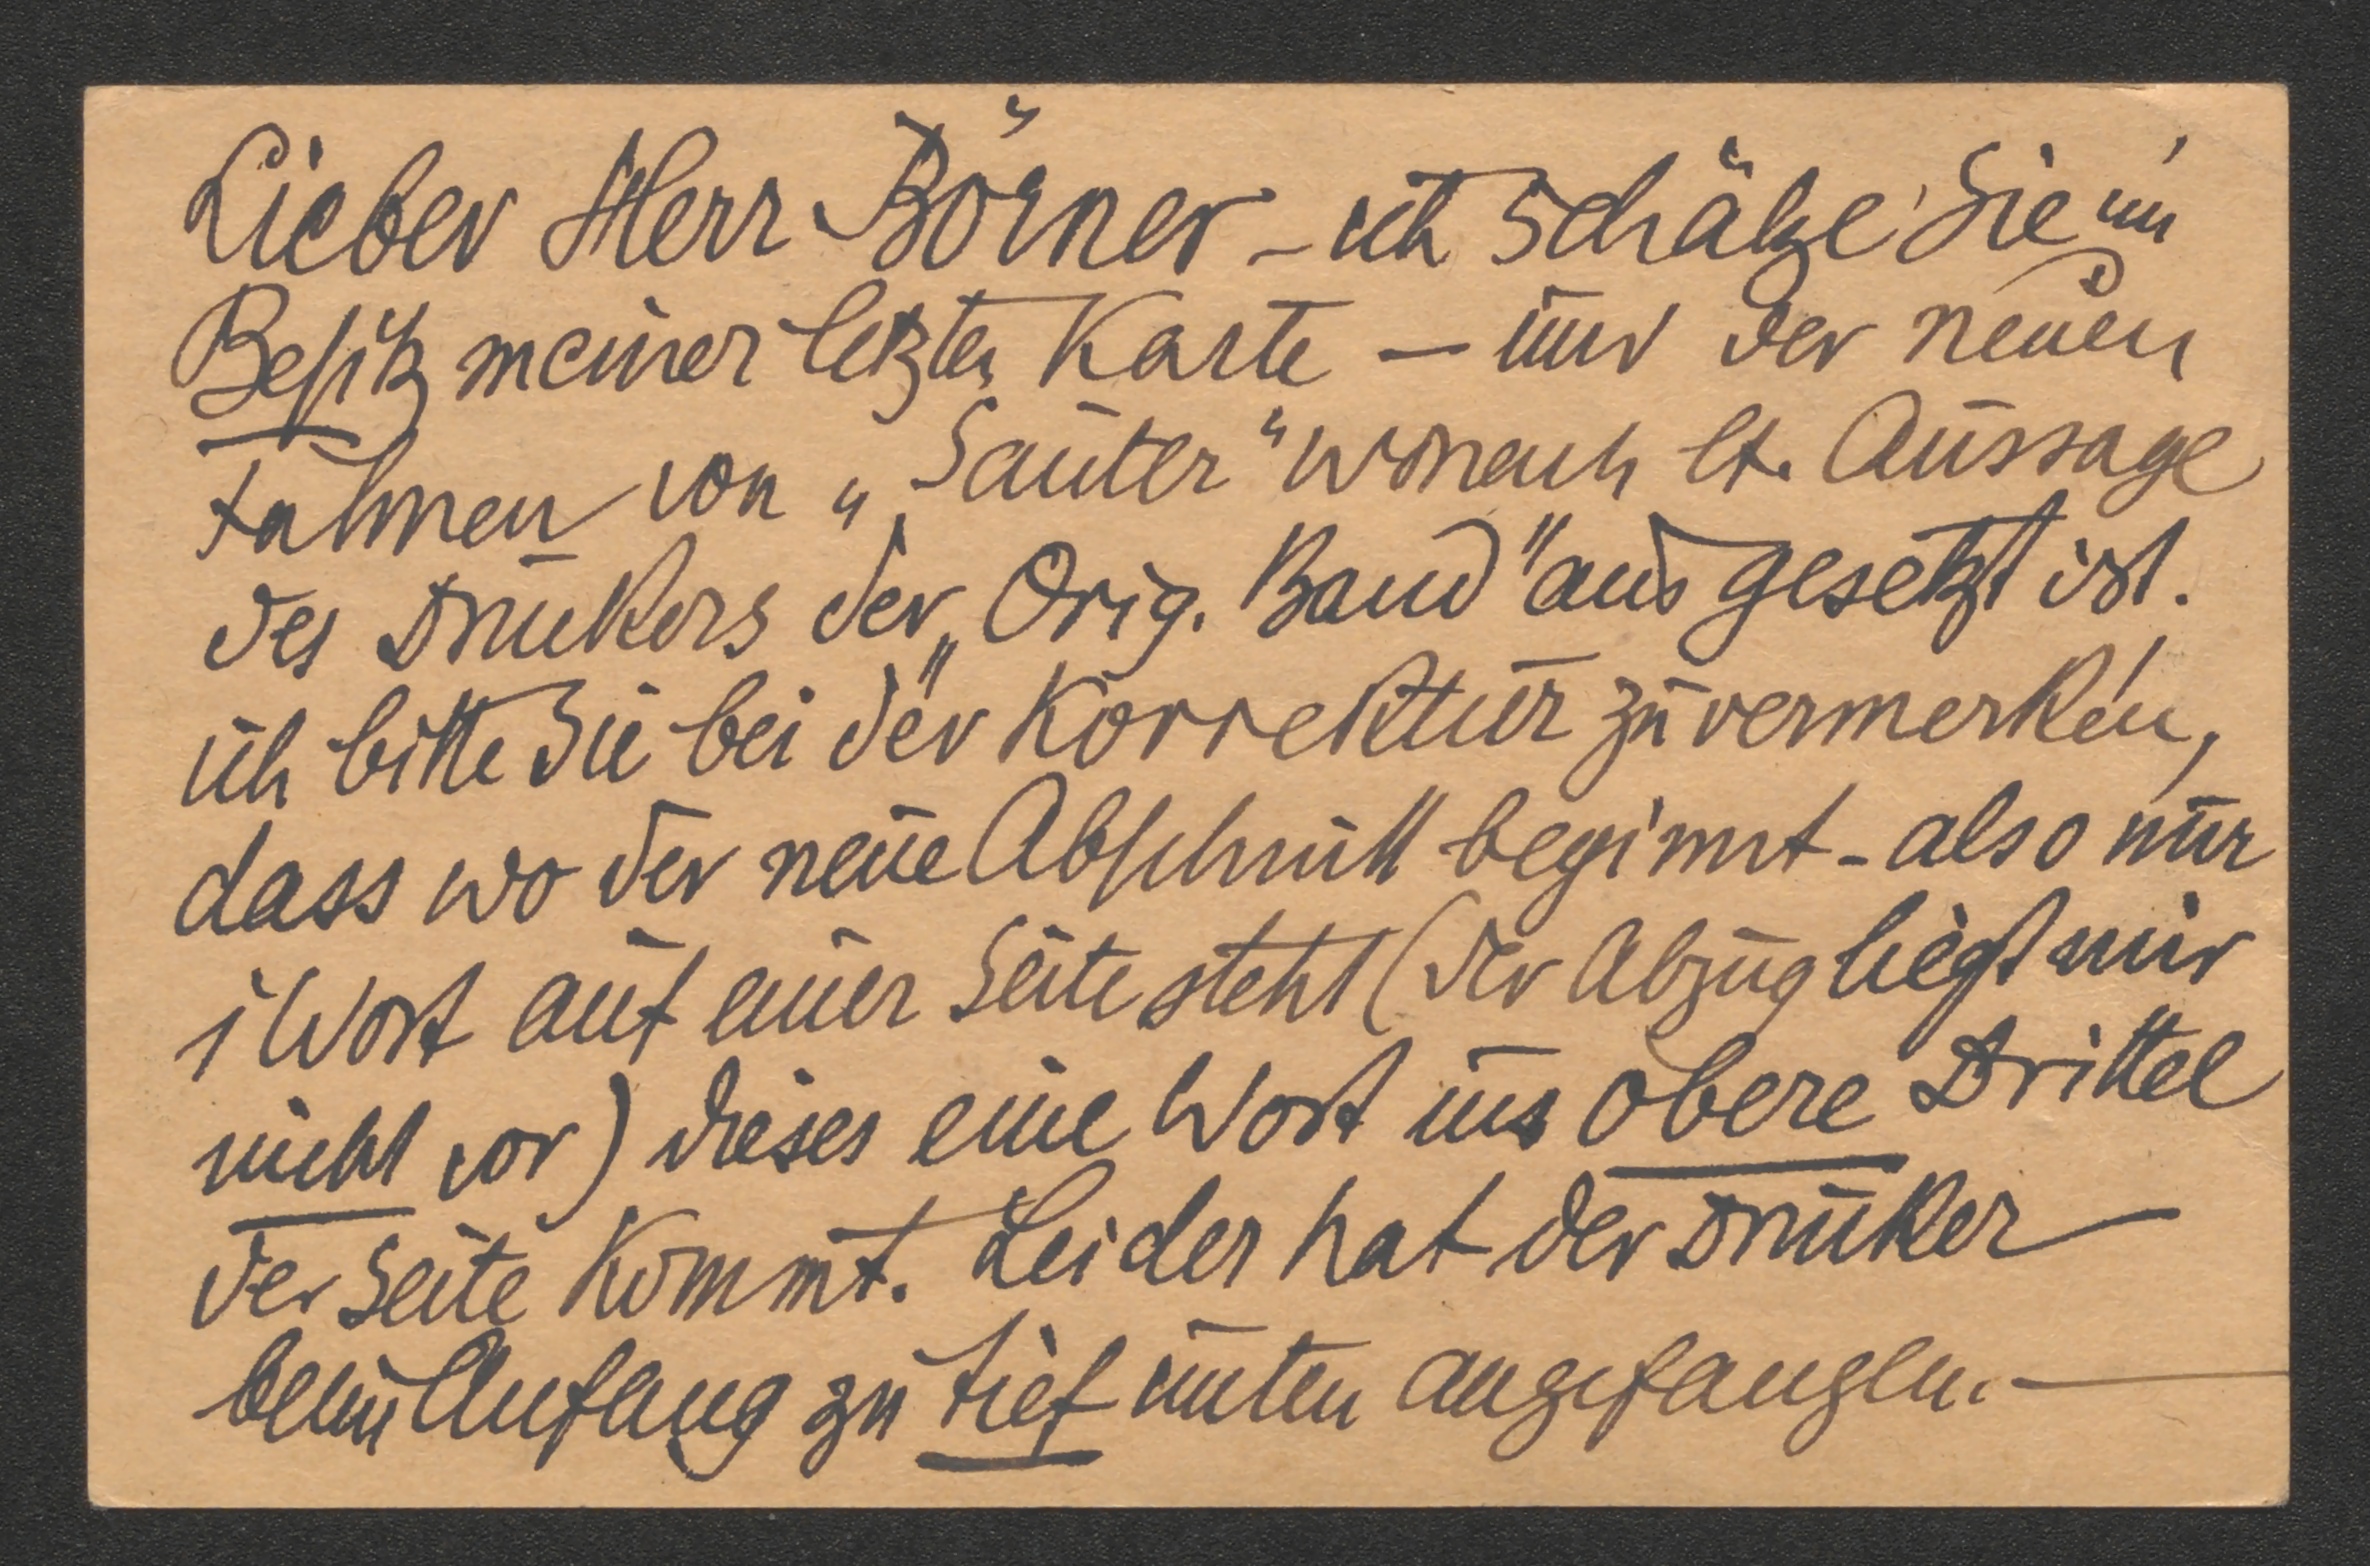 Lieber Herr Börner – ich schätze Sie im
Besitz meiner letzten Karte – und der neuen
Fahnen von „Sauter“ wonach lt. Aussage
des Druckers der „Orig. Band“ ausgesetzt ist.
ich bitte Sie bei der Korrektur zu vermerken,
dass wo der neue Abschnitt beginnt – also nur
1 Wort auf einer Seite steht (der Abzug liegt mir
nicht vor) dieses eine Wort ins obere Drittel
der Seite kommt. Leider hat der Drucker
beim Anfang zu tief unten angefangen. –